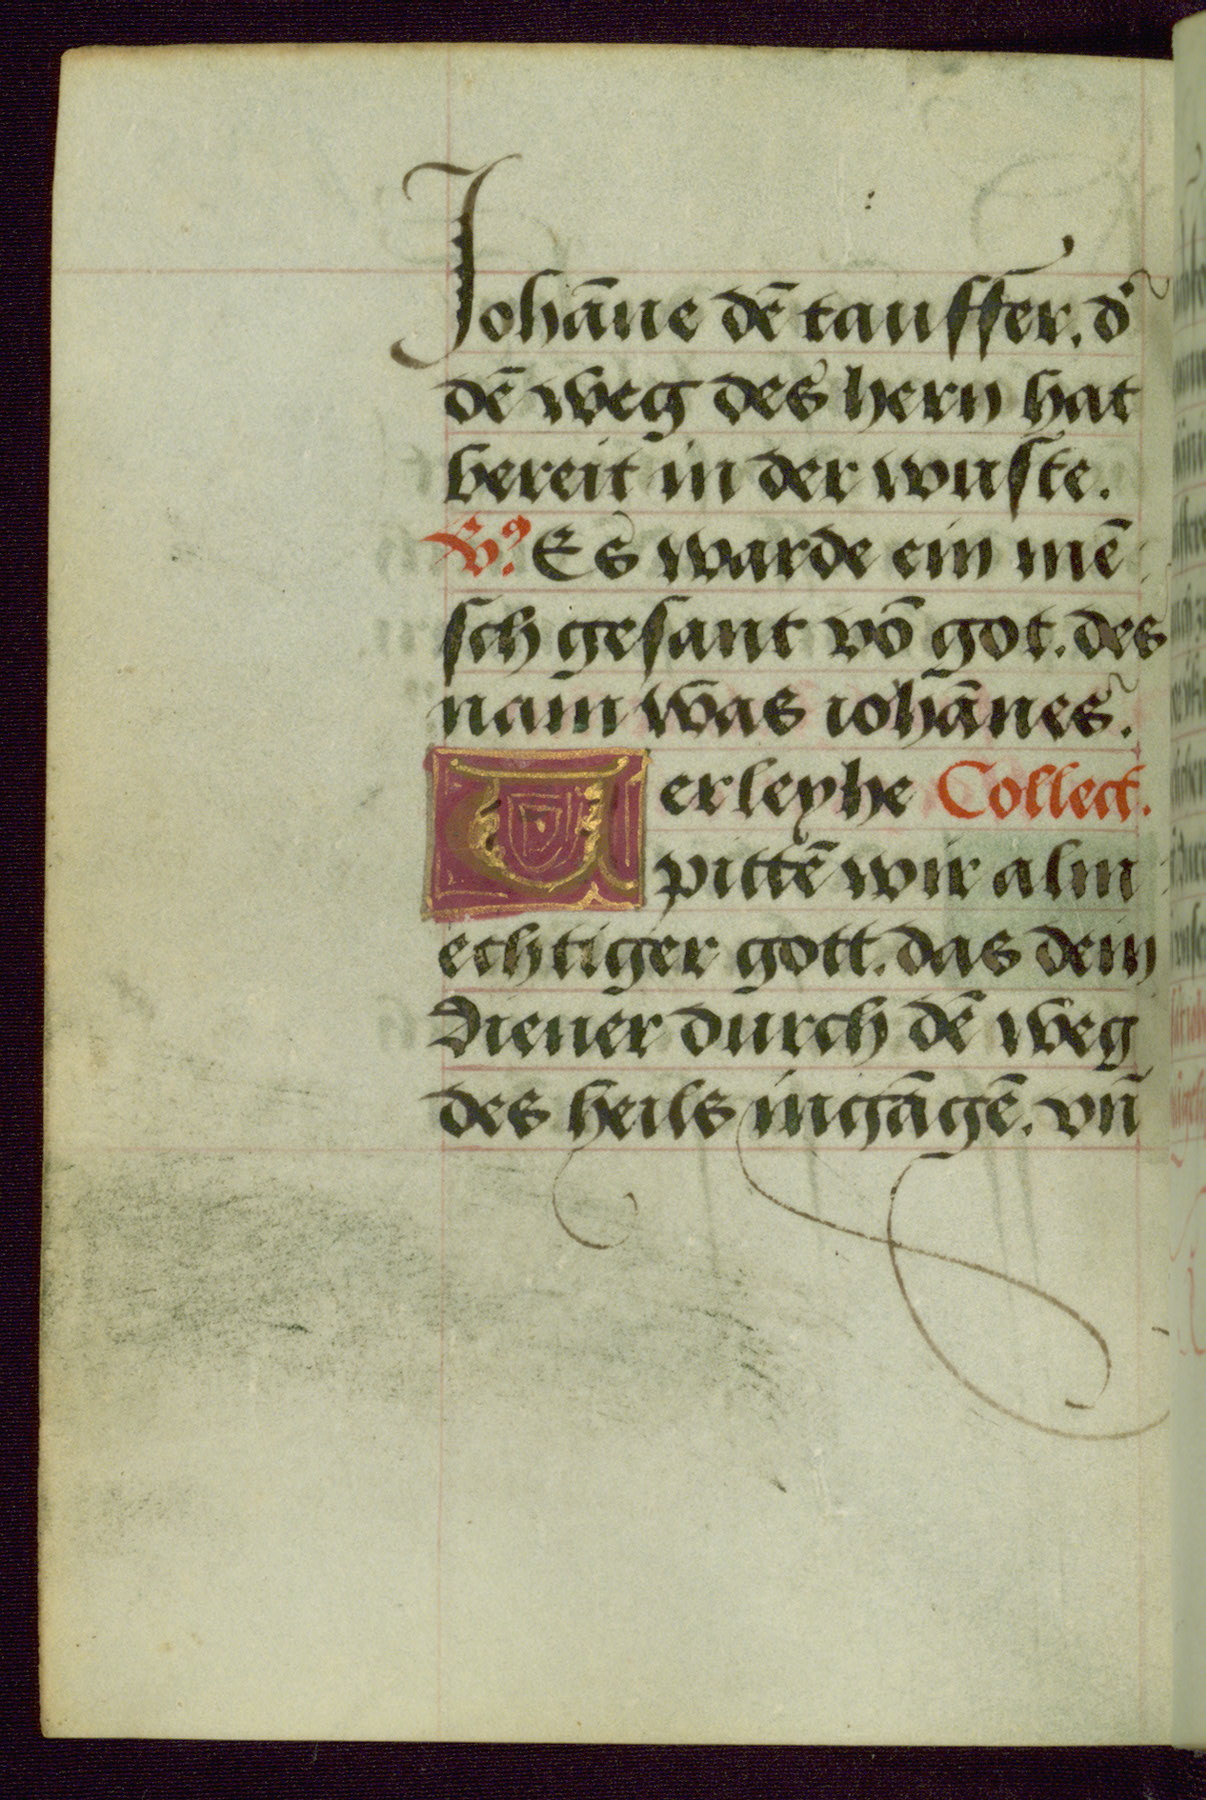 Johāne dē tauffer. dʾ
dē weg des hern hat
bereit in der wuste.
V? Es warde ein mē
sch gesant vō got. des
nam was iohānes.
Verleyhe Collect.
pittē wir alm
echtiger gott. das dein
diener durch dē weg
des heils ingāgē. vn̄